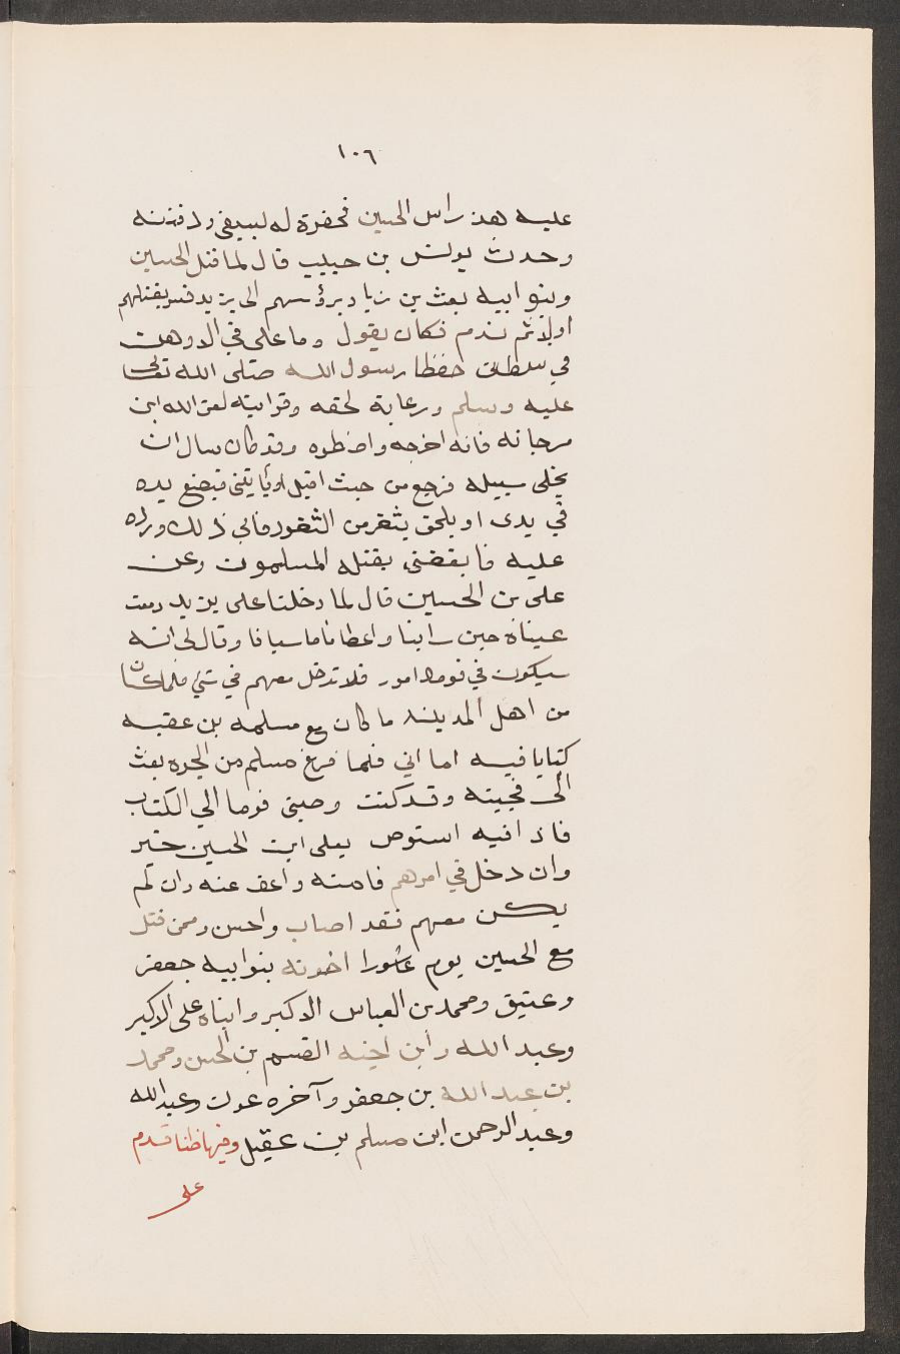 ١٠٦
عليه هذ راس الحسين فحفرة له لسيفى ودفنته
وحدث يونس بن حبيب قال لما قتل الحسين
وبنوا ابيه بعث بن زياد برؤسهم الى يزيد فسر بقتلهم
اولا ثم ندم فكان يقول وما على في الا وهن
في سلطان حفظا رسول الله صلى الله تعالى
عليه وسلم ورعاية لحقه وقرابته لعن الله ابن
مرجانه فانه اخرجه واضطره وقد كان سال ان
يخلى سبيله فرجع من حيث اقبل او ياتينى فيضع يده
في يدى او يلحق بثغر من الثغور فابى ذلك ورده
عليه فابغضنى بقتله المسلمون وعن
على بن الحسين قال لما دخلنا على يزيد دمعت
عيناه حين رابنا واعطانا ما سيانا وقال لى انه
سيكون في قومك امور فلا تدخل معهم في شئ فلما كان
من اهل المدينه ما كان مع مسلمه بن عقبه
كتابا فيه اما انى فلما فرغ مسلم من الحره بعث
الى فجيته وقد كنت وصيتى فوما الي الكتاب
فاذا فيه استوص بعلى ابن الحسين خير
وان دخل في امرهم فامنه واعف عنه وان لم
يكن معهم فقد اصاب واحسن وممن قتل
مع الحسين يوم عاشورا اخوته بنوا بيه جعفر
وعتيق ومحمد بن العباس الاكبر وابناه على الاكبر
وعبد الله وابن اخيه القسم بن الحسن ومحمد
بن عبد الله بن جعفر وآخره عون وعبد الله
وعبد الرحمن ابن مسلم بن عقيل وفيها ظنا قدم
على